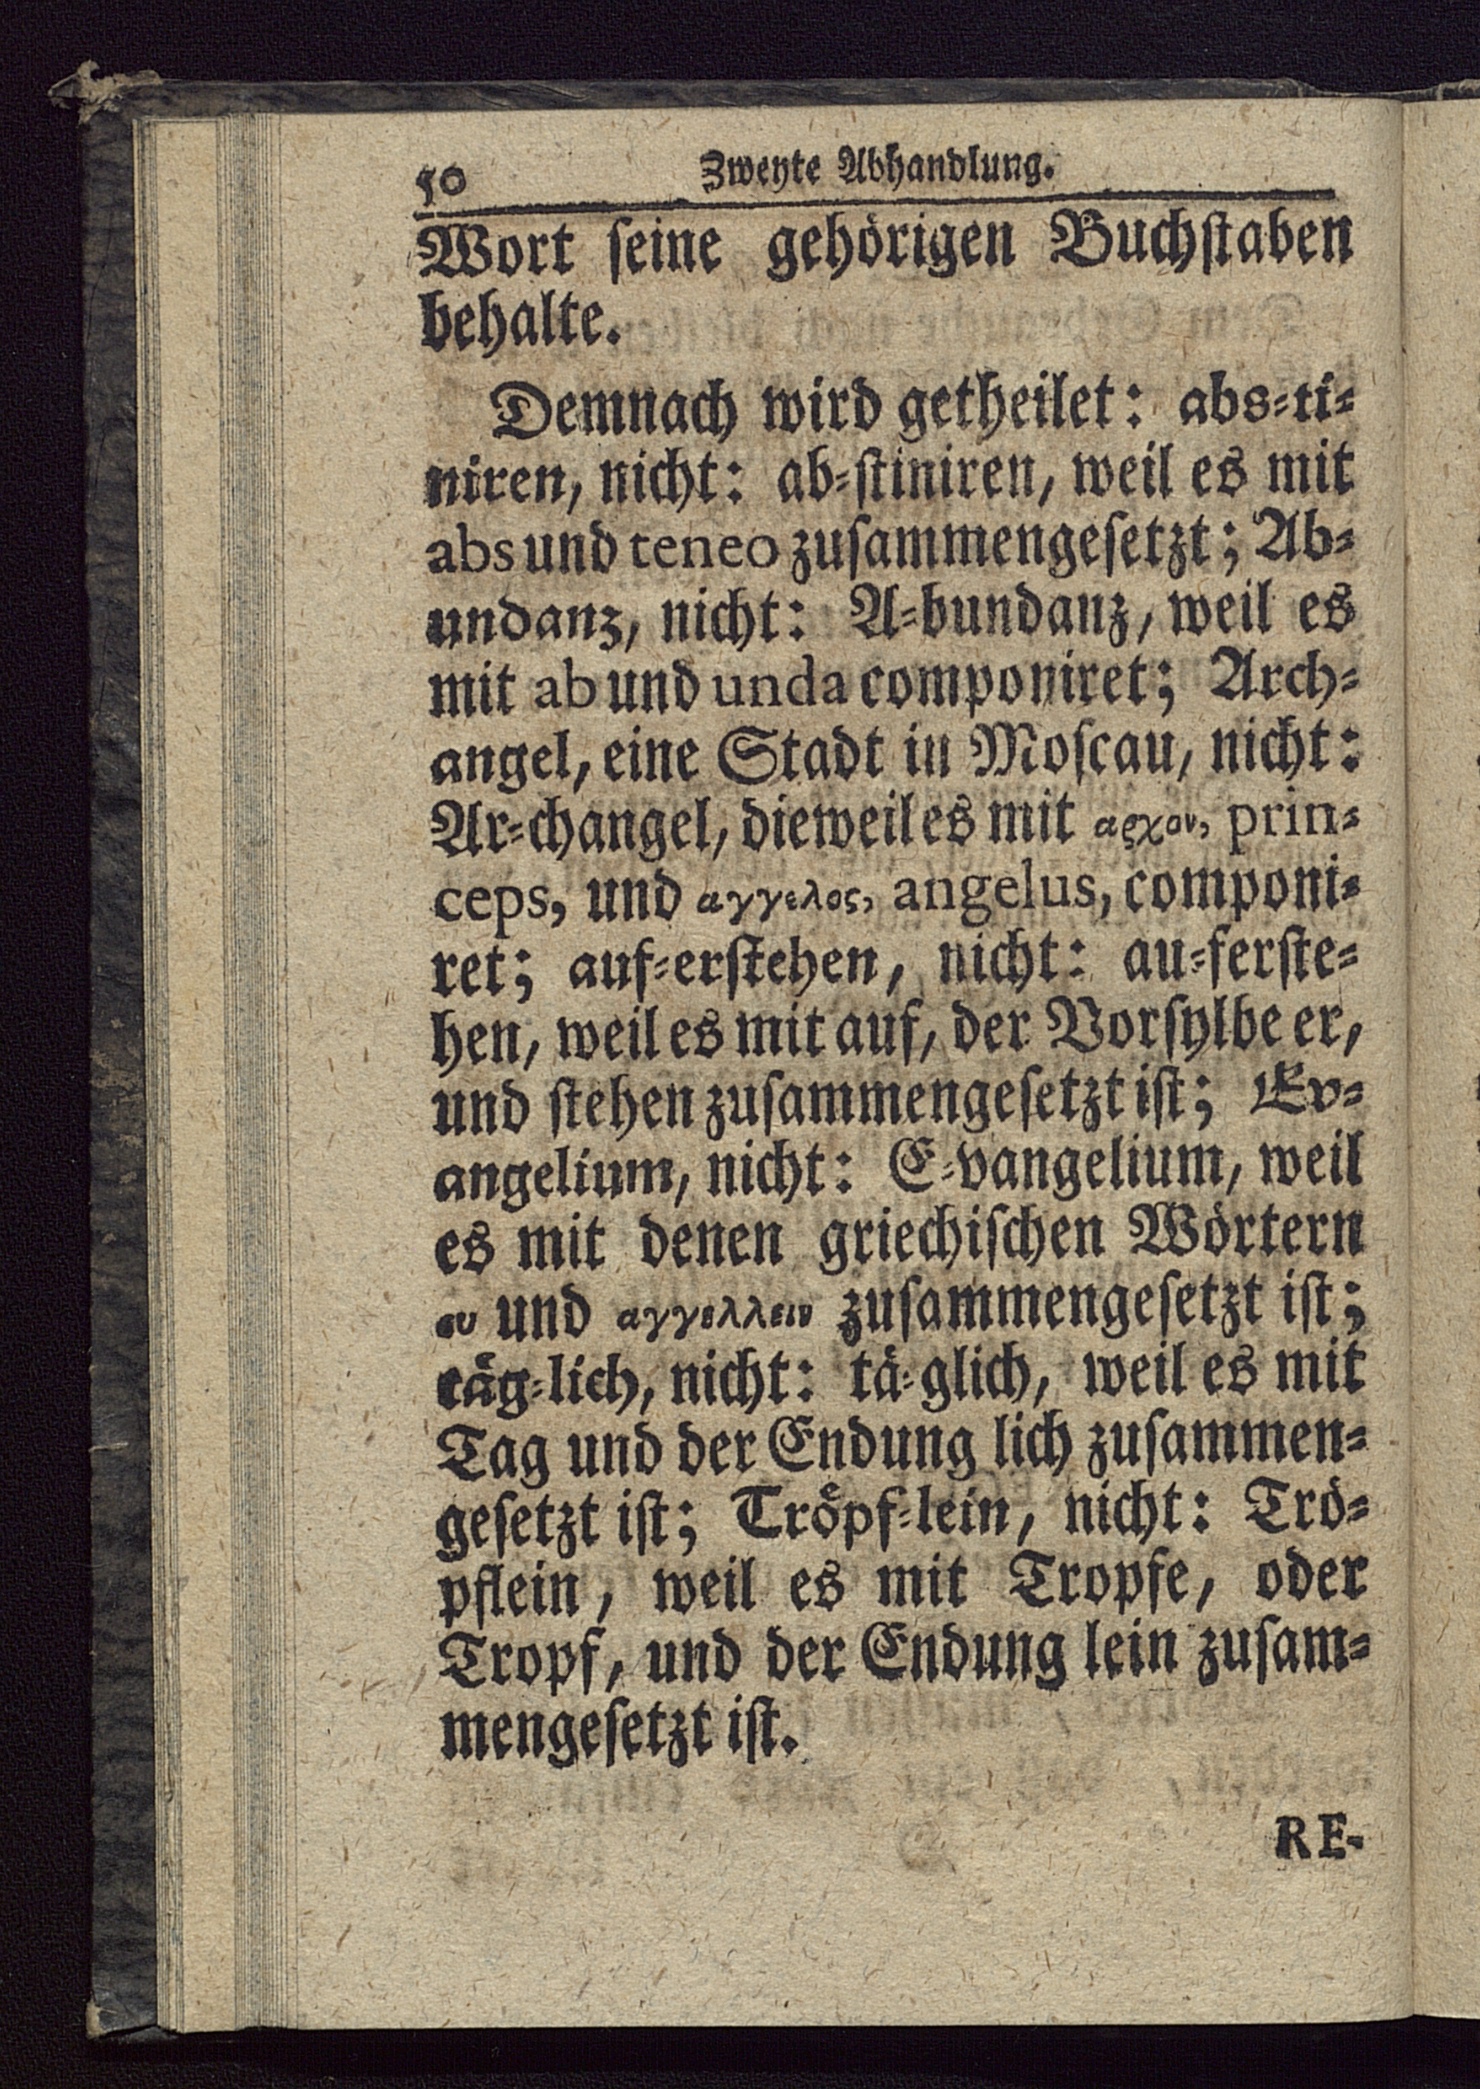 50 Zweyte Abhandlung.
Wort ſeine gehörigen Buchſtaben
behalte.
Demnach wird getheilet: abs-ti-
niren, nicht: ab-ſtiniren, weil es mit
abs und teneo zuſammengeſetzt; Ab-
undanz, nicht: A-bundanz, weil es
mit ab und unda componiret; Arch-
angel, eine Stadt in Moſcau, nicht:
Ar-changel, dieweil es mit αρχον, prin-
ceps, und αγγελος, angelus, componi-
ret; auf-erſtehen, nicht: au-ferſte-
hen, weil es mit auf, der Vorſylbe er,
und ſtehen zuſammengeſetzt iſt; Ev-
angelium, nicht: E-vangelium, weil
es mit denen griechiſchen Wörtern
ευ und αγγελλειν zuſammengeſetzt iſt;
täg-lich, nicht: tä-glich, weil es mit
Tag und der Endung lich zuſammen-
geſetzt iſt; Tröpf-lein, nicht: Trö-
pflein, weil es mit Tropfe, oder
Tropf, und der Endung lein zuſam-
mengeſetzt iſt.
RE-